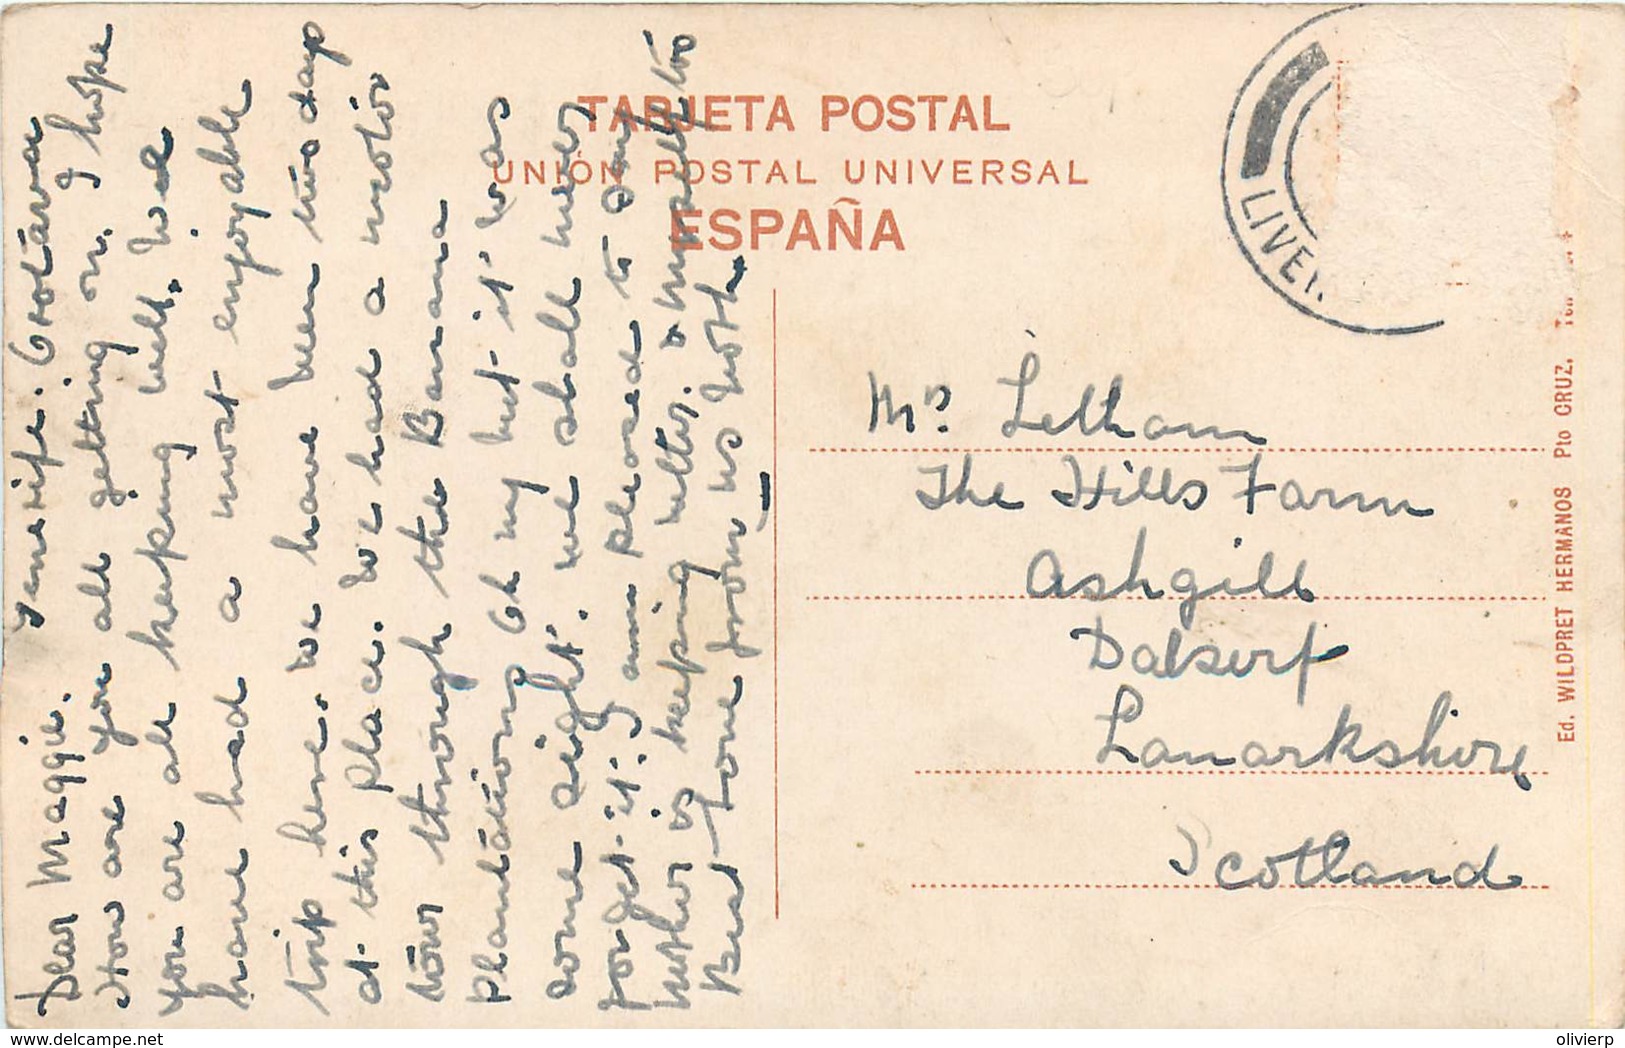 Dear Maggie. Tenerife. Orotava
How are you all getting on, I hope
you are all keeping well. We
have had a most enjoyable
trip here. we have been two days
at this place. We had a motor
tour through the Banana
plantations Oh my but it was
some sight. we shall never
forget it. I am pleased to say
is keeping better. & myself too
Best love from us both
TARJETA POSTAL
UNIÓN POSTAL UNIVERSAL
ESPAÑA
LIVER
Mrs Letham
The Hills Farm
Ashgill
Dalserf
Lanarkshire
Scotland
Ed. WILDPRET HERMANOS Pto CRUZ.
delcampe.net
olivierp